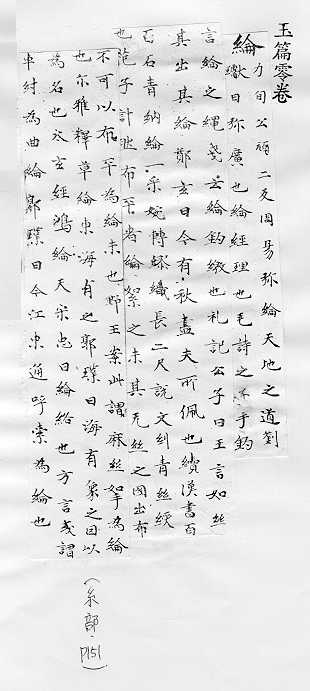 玉篇零卷
綸 力旬公頑二反周易弥綸天地之道劉
瓛曰弥廣也綸經理也毛詩之子于釣
言綸之繩箋云綸釣繳也礼記公子曰王言如絲
其出其綸鄭玄曰今有秋嗇夫所佩也續漢書百
石青紺綸一采婉轉繆織長二尺說文糾青絲綬
也范子計然布平者綸絮之未其无絲之國出布
不可以布平為綸未也野王案此謂麻絲如手為綸
也尓雅釋草綸東海有之郭璞曰海有象之因以
為名也太玄經鴻綸天宋忠曰綸絡也方言或謂
車紂為曲綸郭璞曰今江東通呼索為綸也
(糸部·P151)